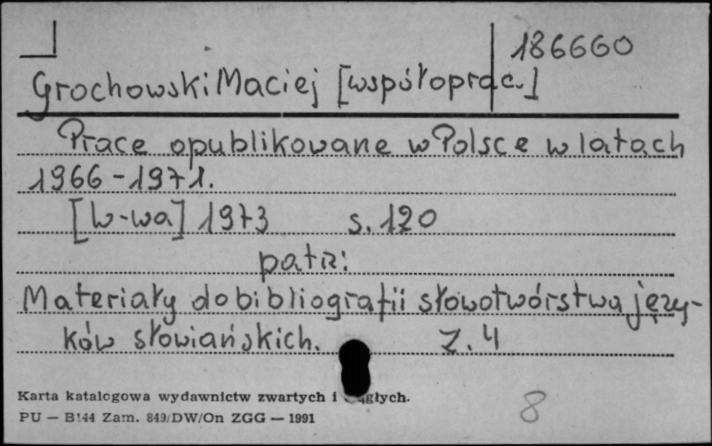 186660
Grochowski Maciej [współoprac.]
Prace opublikowane w Polsce w latach
1966-1971.
[W-wa] 1973 s. 120
patrz:
Materiały do bibliografii słowotwórstwa języ-
ków słowiańskich. Z. 4
Karta katalogowa wydawnictw zwartych i ciągłych.
PU — B144 Zam. 849/DW/On ZGG — 1991
8